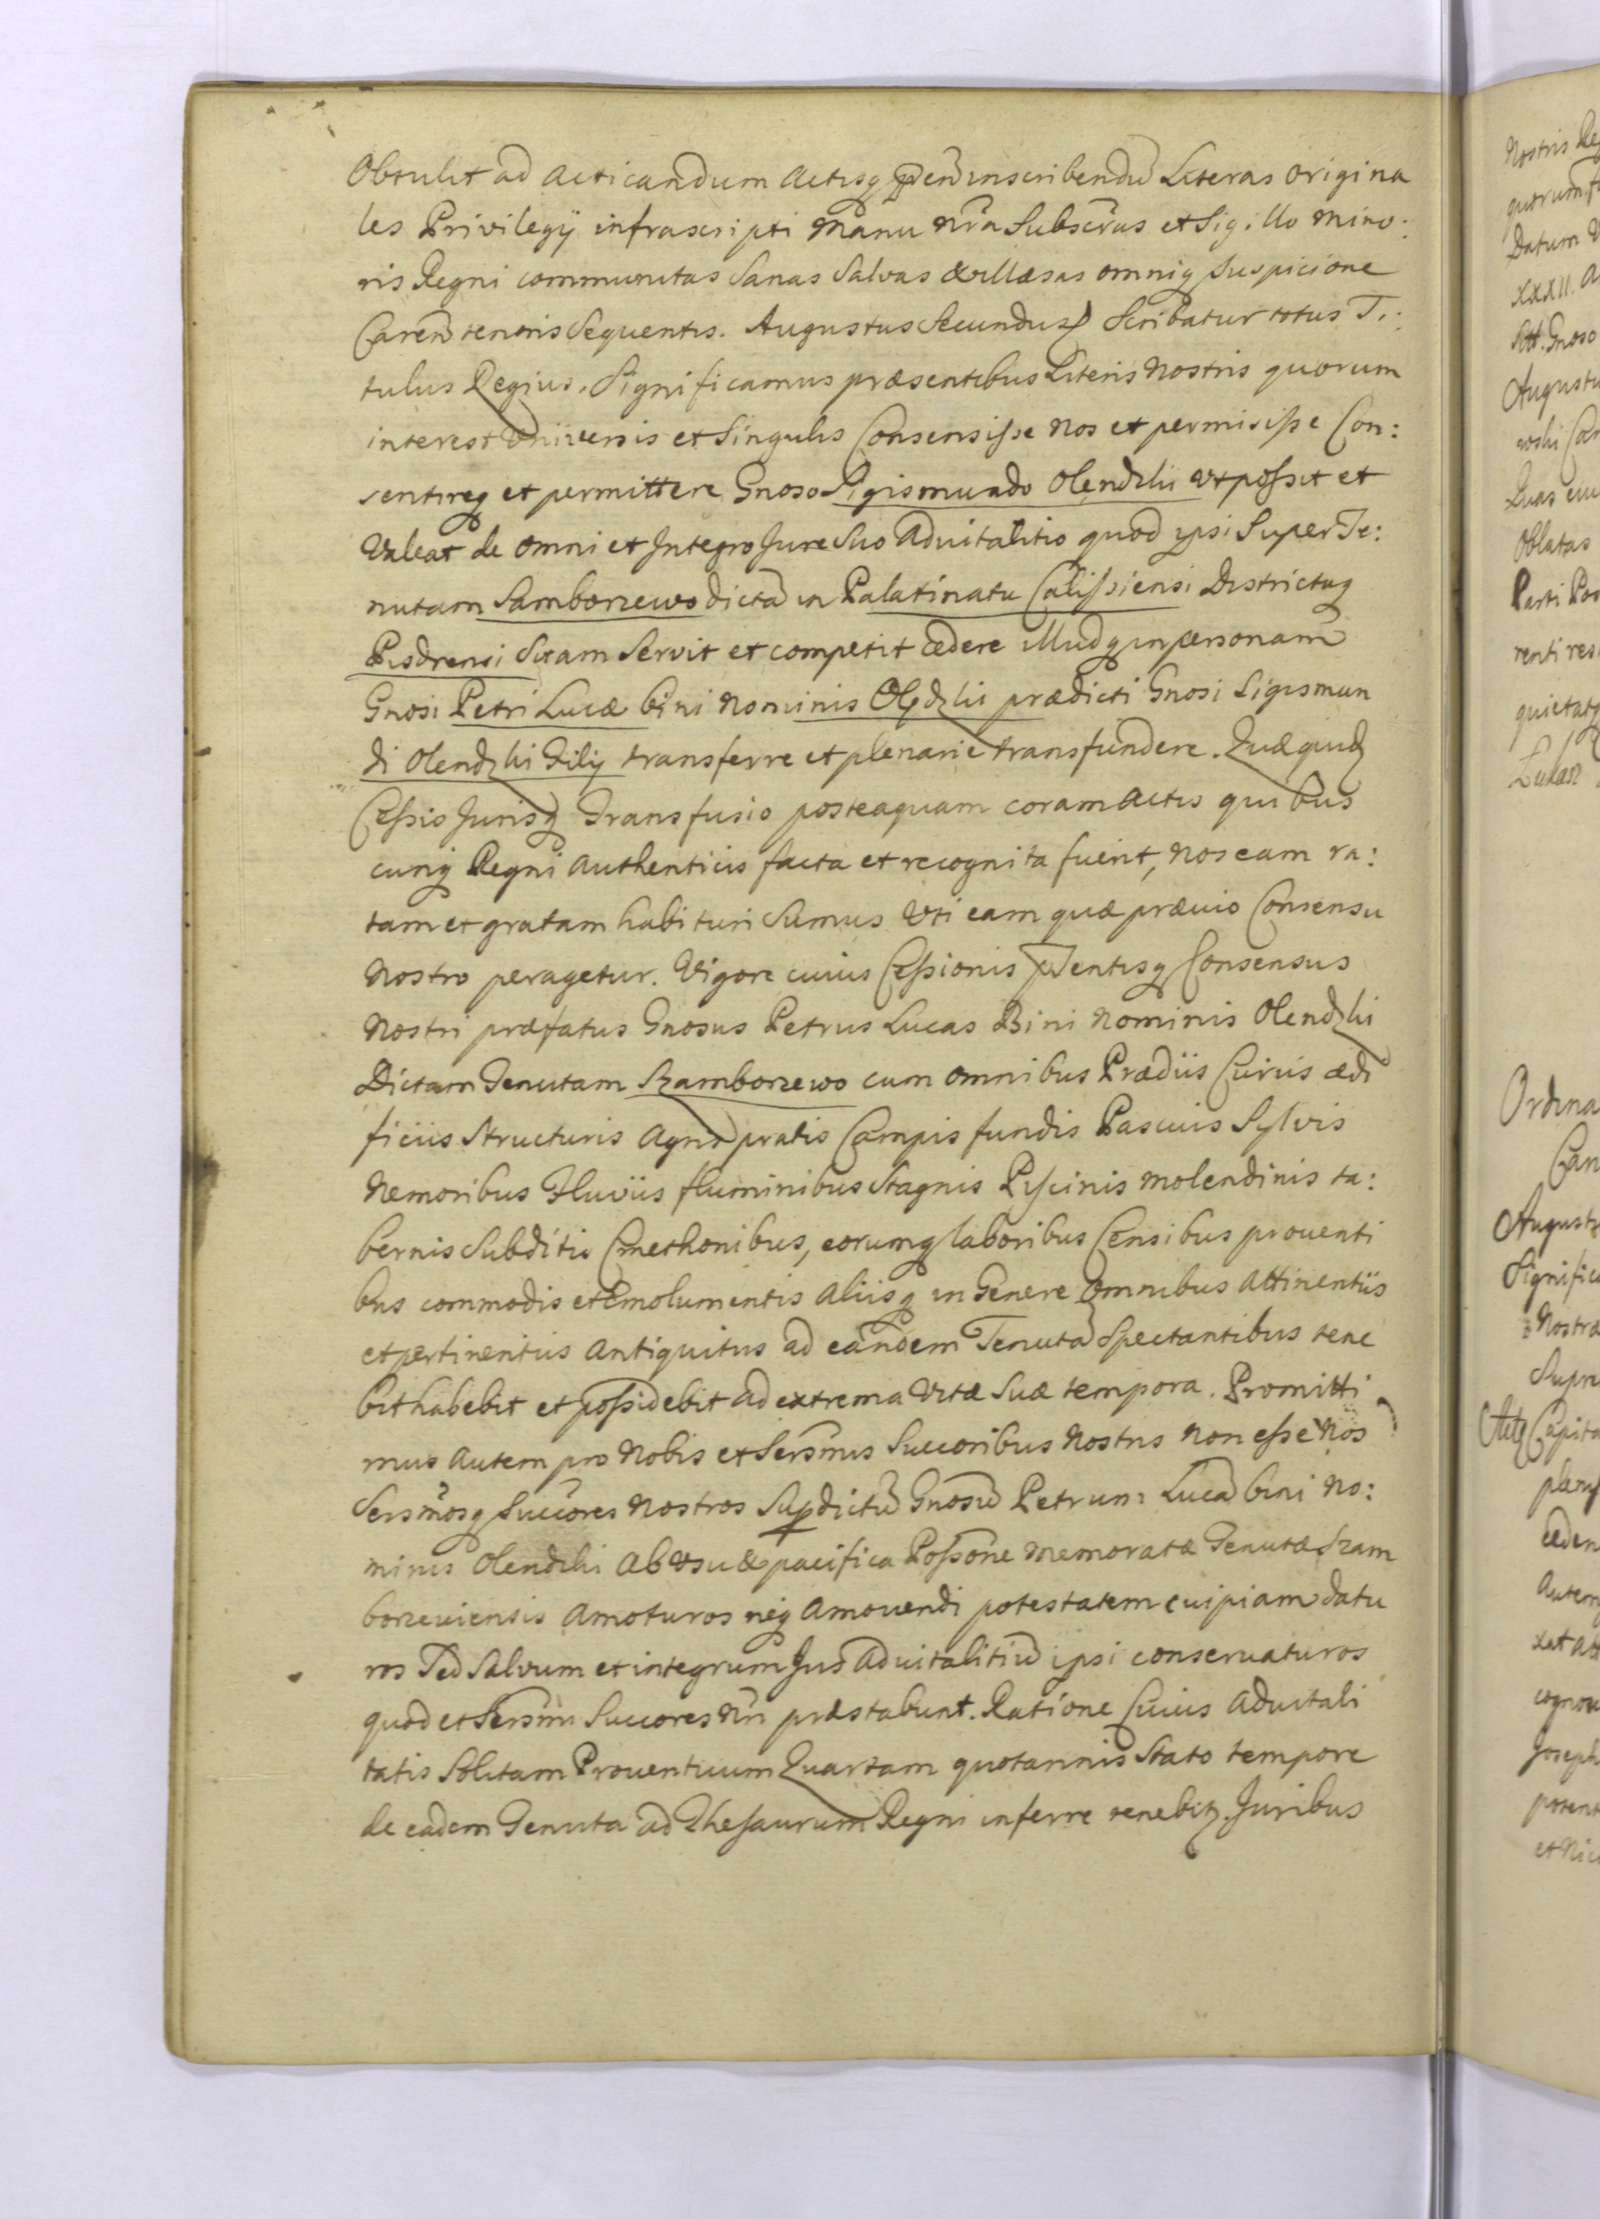 Obtulit ad acticandum actisq pñ inscribendũ Literas origina
les Privilegÿ infrascripti Manu Nrã Subscrãs et Sigillo mino:
ris Regni communitas Sanas Salvas & illæsas omniq suspicione
Careñ tenoris Sequentis. Augustus Secundus Scribatur totus Ti:
tulus Regius. Significamus præsentibus Literis Nostris quorum
interest Universis et Singulis Consensisse Nos et permisisse Con:
sentireq et permittere Gnoso Sigismundo Olendzki Ut possit et
Valeat de omni et Integro Jure Suo Advitalitio quod ipsi Super Te:
nutam Samborzewo dictã in Palatinatu Calissiensi Districtuq
Pisdrensi Sitam Servit et competit cedere illudq in personam
Gnosi Petri Lucæ bini Nominis Olędzki prædicti Gnosi Sigismun
di Olendzki Filij transferre et plenarie transfundere. Quæquid
Cessio Jurisq Transfusio posteaquam coram Actis quibus
cunq Regni Authenticis facta et recognita fuerit, Nos eam ra:
tam et gratam habituri Sumus Uti eam quæ prævio Consensu
Nostro peragetur. Vigore cuius Cessionis pñtisq Consensus
Nostri præfatus Gnosus Petrus Lucas Bini Nominis Olendzki
Dictam Tenutam Szamborzewo cum omnibus Prædiis Curiis ædi
ficiis Structuris Agris pratis Campis fundis Pascuis Sylvis
Nemoribus Fluviis fluminibus Stagnis Piscinis Molendinis ta:
bernis Subditis Cmethonibus, eorumq laboribus Censibus proventi
bus commodis et Emolumentis aliisq in Genere omnibus Attinentiis
et pertinentiis antiquitus ad eandem Tenutã Spectantibus tene
bit habebit et possidebit ad extrema Vitæ Suæ tempora. Promitti
mus autem pro Nobis et Sersmis Succoribus Nostris Non esse Nos
Sersmosq Succores Nostros Supdictũ Gnosũ Petrum Lucã bini No:
minis Olendzki Ab Usu & pacifica Possone Memoratæ Tenutæ Szam
borzeviensis Amoturos neq Amovendi potestatem cuipiam datu
ros Sed Salvum et integrum Jus Advitalitiũ ipsi conservaturos
quod et Sersmi Succores Nri præstabunt. Ratione Cuius Advitali
tatis Solitam Proventuum Quartam quotannis Stato tempore
de eadem Tenuta ad Thesaurum Regni inferre tenebit. Juribus